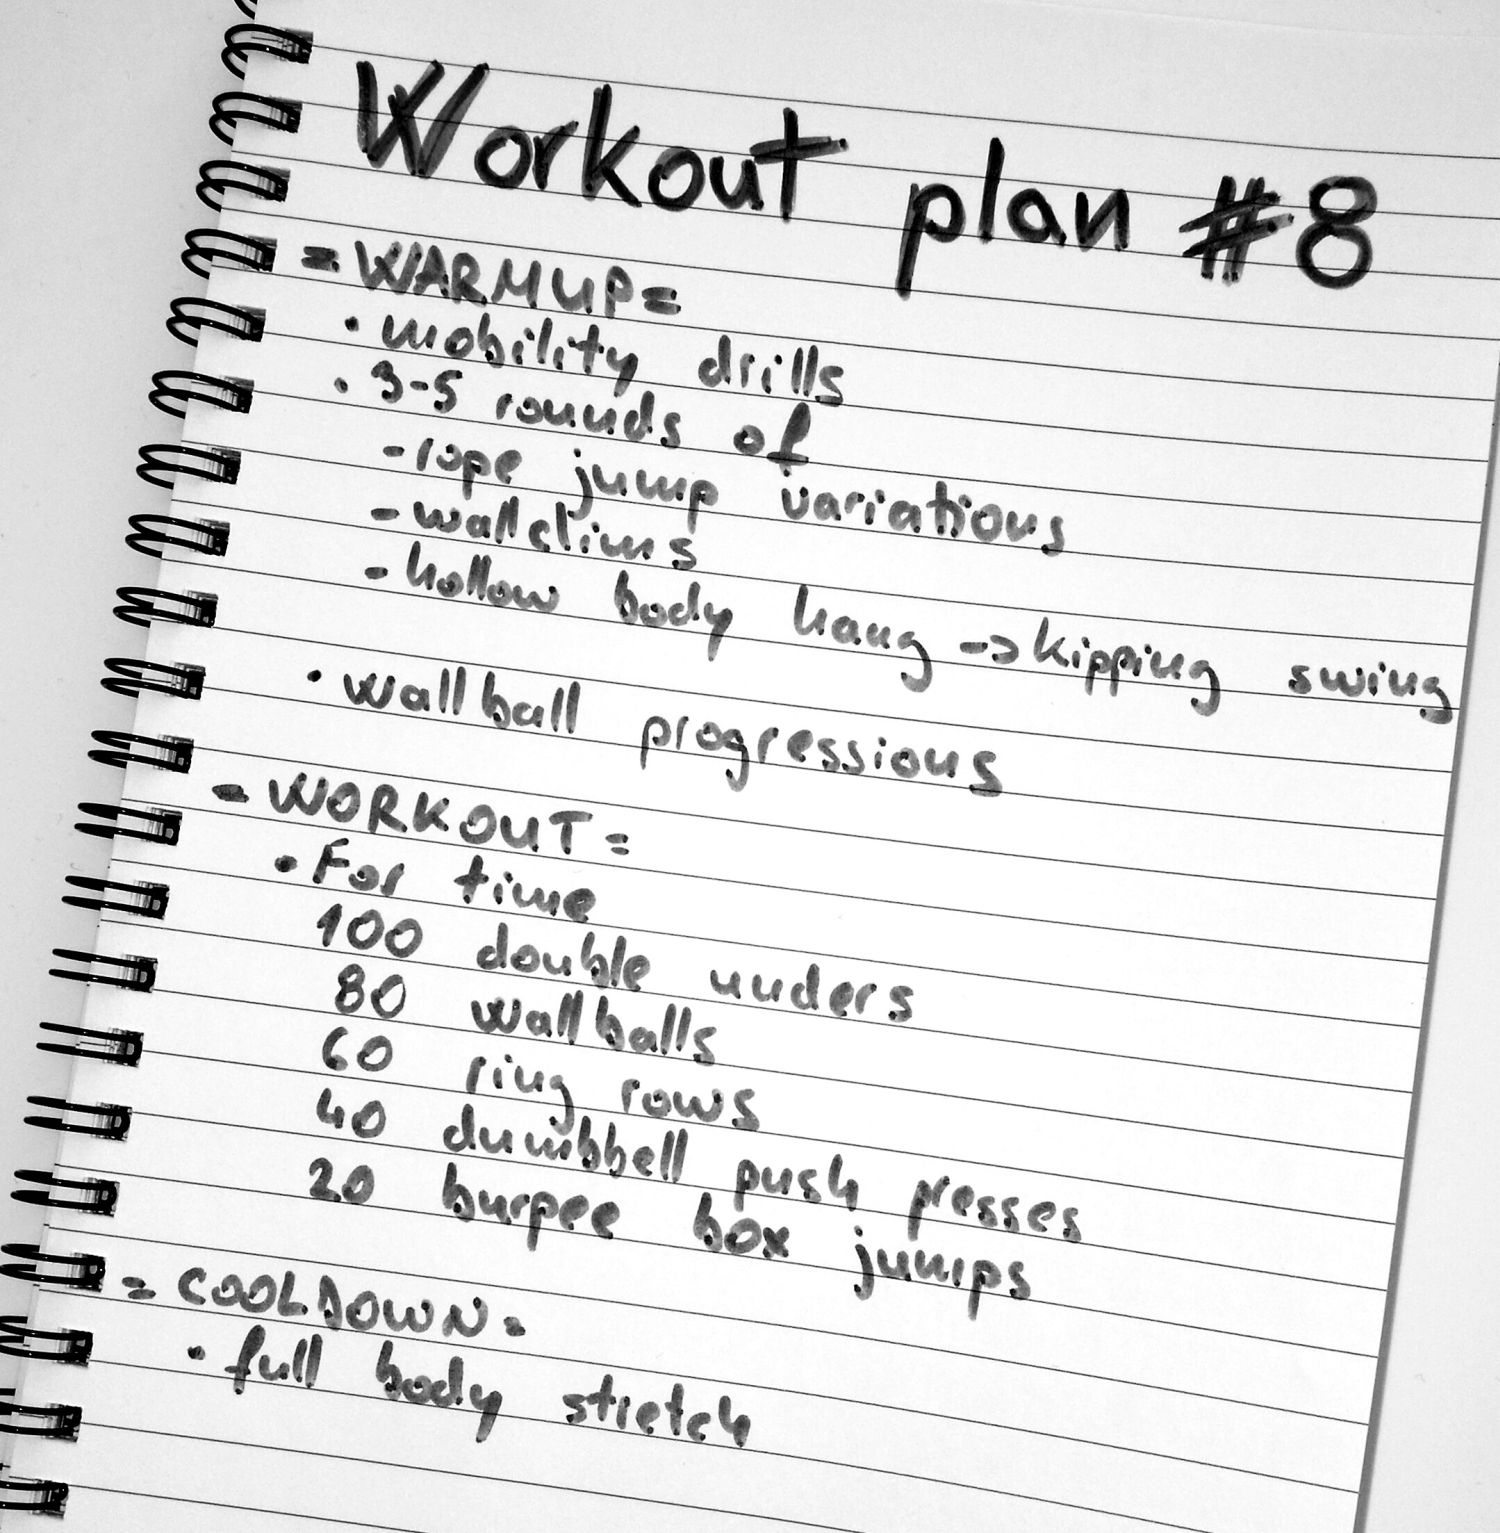 Workout plan #8
= WARMUP =
• mobility drills
• 3-5 rounds of
- rope jump variations
- wallclims
- hollow body hang -> kipping swing
• wallball progressions
= WORKOUT =
• For time
100 double unders
80 wallballs
60 ring rows
40 dumbbell push presses
20 burpee box jumps
= COOLDOWN =
• full body stretch